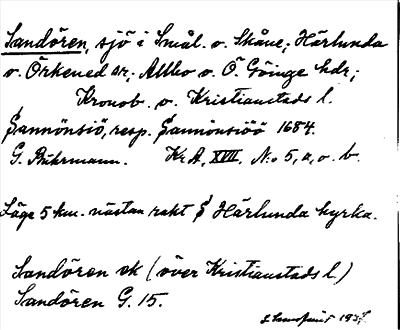 Sandören, sjö i Smål. o. Skåne; Härlunda
o. Örkened snr; Allbo o. Ö. Göinge hdr;
Kronob. o. Kristianstads l.
Sannönsiö, resp. Sannönsiöö 1684.
G. Buhrmann. Kr.A, XVII, N:o 5, a, o. b.
Läge 5 km. nästan rakt S Härlunda kyrka.
Sandören ek (över Kristianstads l.)
Sandören G. 15.